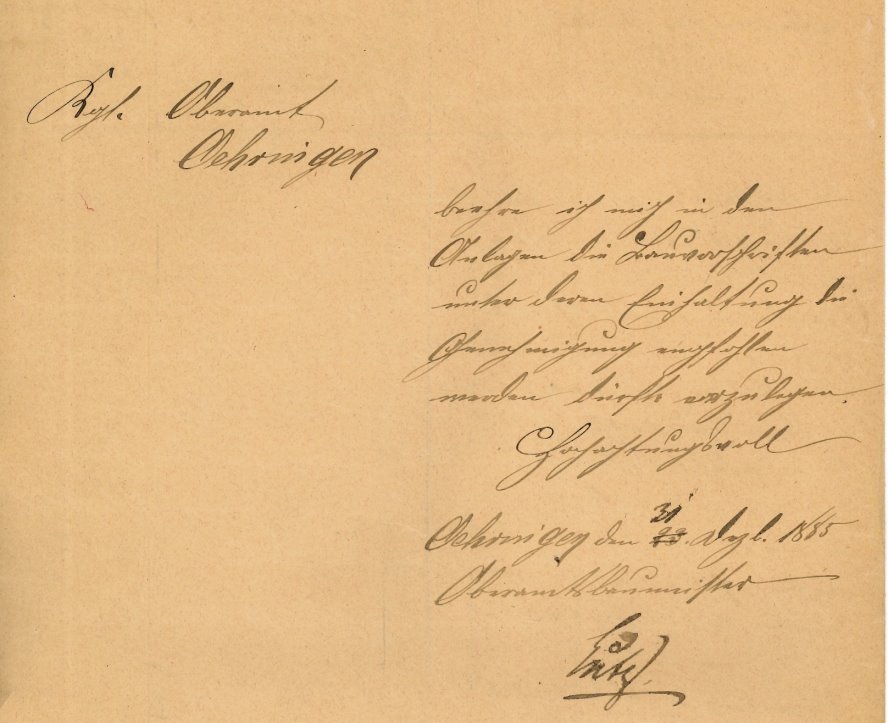 Kgl. Oberamt
Oehringen
beehre ich mich in den
Anlagen die Bauvorschriften
unter deren Einhaltung die
Genehmigung empfohlen
werden dürfte vorzulegen.
Hochachtungsvoll
31
Oehringen den . Dezb. 1885
Oberamtsbaumeister